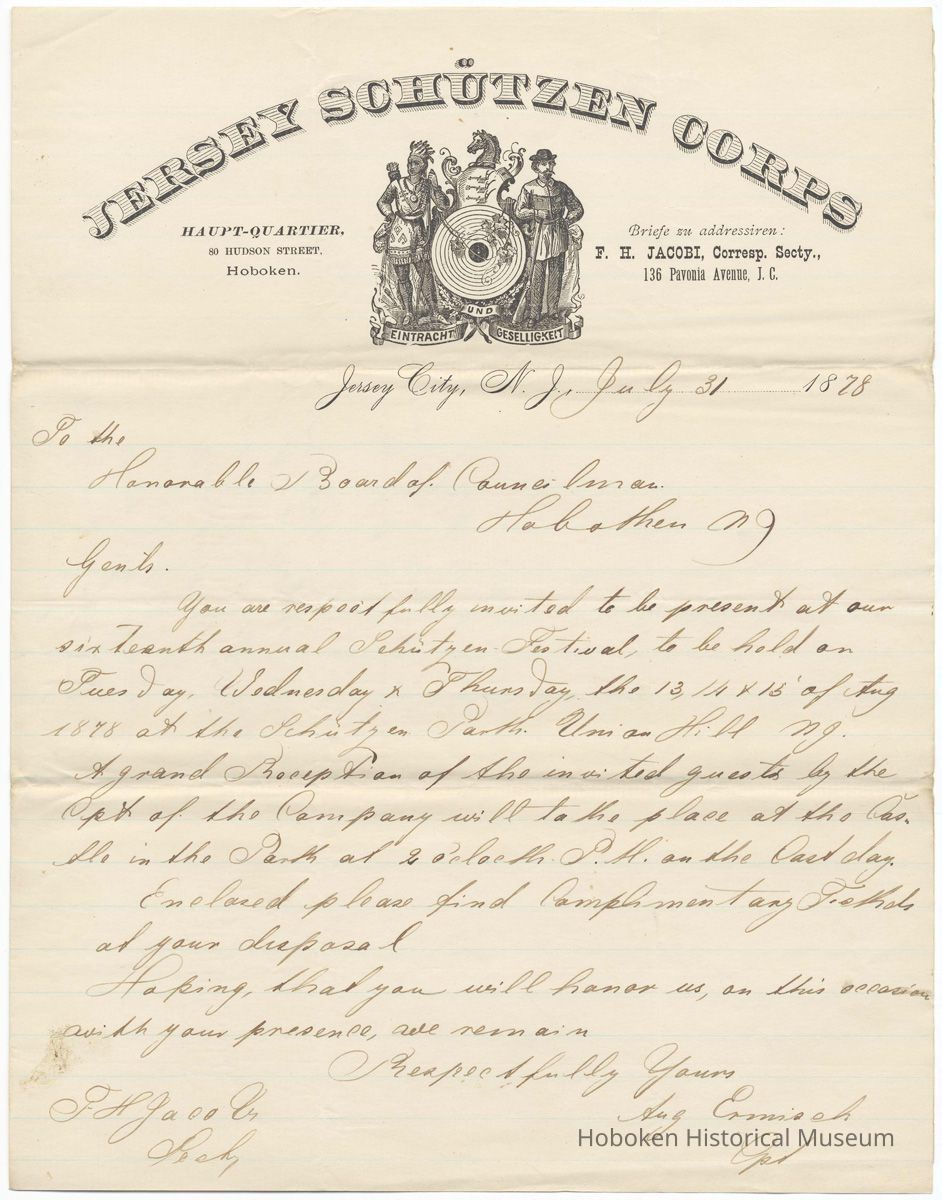 JERSEY SCHÜTZEN CORPS
HAUPT-QUARTIER,
80 HUDSON STREET,
Hoboken.
Briefe zu addressiren:
F. H. JACOBI, Corresp. Secty.,
136 Pavonia Avenue, J. C.
UND
EINTRACHT GESELLIGKEIT
Jersey City, N. J., July 31 1878
To the
Honorable Board of Councilman
Hobothen NJ
Gents.
You are respectfully invited to be present at our
sixteenth annual Schützen Festival, to be held on
Tuesday, Wednesday & Thursday, the 13, 14 & 15 of Aug
1878 at the Schützen Park Union Hill NJ.
A grand Reception of the invited guests by the
Cpt of the Company will take place at the Cas-
tle in the Park at 2 o'clock P.M. on the last day.
Enclosed please find Complimentary Tickets
at your disposal
Hoping, that you will honor us, on this occasion
with your presence, we remain
Respectfully Yours
F H Jacobi Aug Ermisch
Secty Cpt
Hoboken Historical Museum